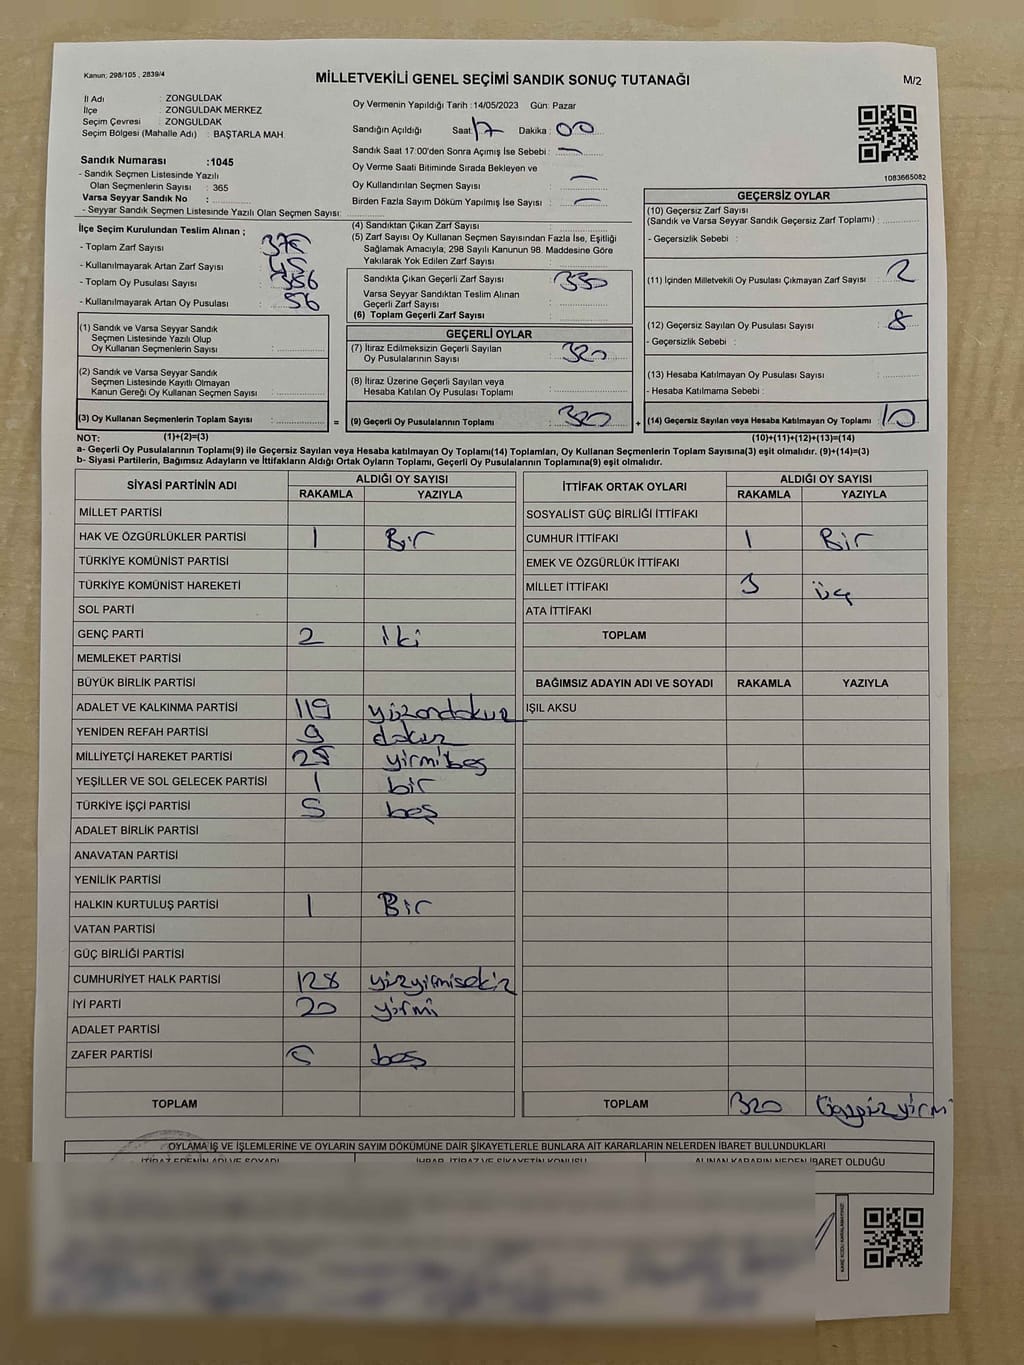 Kanun; 298/105 , 2839/4
MİLLETVEKİLİ GENEL SEÇİMİ SANDIK SONUÇ TUTANAĞI
M/2
İl Adı : ZONGULDAK
İlçe : ZONGULDAK MERKEZ
Seçim Çevresi : ZONGULDAK
Seçim Bölgesi (Mahalle Adı) : BAŞTARLA MAH.
Oy Vermenin Yapıldığı Tarih :14/05/2023 Gün: Pazar
Sandığın Açıldığı Saat: 17 Dakika : 00
Sandık Saat 17:00'den Sonra Açımış İse Sebebi : —
Oy Verme Saati Bitiminde Sırada Bekleyen ve
Oy Kullandırılan Seçmen Sayısı : —
Birden Fazla Sayım Döküm Yapılmış İse Sayısı : —
1083665082
Sandık Numarası :1045
- Sandık Seçmen Listesinde Yazılı
Olan Seçmenlerin Sayısı : 365
Varsa Seyyar Sandık No :
- Seyyar Sandık Seçmen Listesinde Yazılı Olan Seçmen Sayısı:
İlçe Seçim Kurulundan Teslim Alınan ;
- Toplam Zarf Sayısı :
- Kullanılmayarak Artan Zarf Sayısı : 45
- Toplam Oy Pusulası Sayısı :
- Kullanılmayarak Artan Oy Pusulası : 56
(1) Sandık ve Varsa Seyyar Sandık
Seçmen Listesinde Yazılı Olup
Oy Kullanan Seçmenlerin Sayısı :
(2) Sandık ve Varsa Seyyar Sandık
Seçmen Listesinde Kayıtlı Olmayan
Kanun Gereği Oy Kullanan Seçmen Sayısı :
(3) Oy Kullanan Seçmenlerin Toplam Sayısı : =
(4) Sandıktan Çıkan Zarf Sayısı :
(5) Zarf Sayısı Oy Kullanan Seçmen Sayısından Fazla İse, Eşitliği
Sağlamak Amacıyla, 298 Sayılı Kanunun 98. Maddesine Göre
Yakılarak Yok Edilen Zarf Sayısı :
Sandıkta Çıkan Geçerli Zarf Sayısı : 330
Varsa Seyyar Sandıktan Teslim Alınan
Geçerli Zarf Sayısı :
(6) Toplam Geçerli Zarf Sayısı :
GEÇERLİ OYLAR
(7) İtiraz Edilmeksizin Geçerli Sayılan
Oy Pusulalarının Sayısı : 320
(8) İtiraz Üzerine Geçerli Sayılan veya
Hesaba Katılan Oy Pusulası Toplamı :
(9) Geçerli Oy Pusulalarının Toplamı : 320 +
GEÇERSİZ OYLAR
(10) Geçersiz Zarf Sayısı
(Sandık ve Varsa Seyyar Sandık Geçersiz Zarf Toplamı) :
- Geçersizlik Sebebi :
(11) İçinden Milletvekili Oy Pusulası Çıkmayan Zarf Sayısı : 2
(12) Geçersiz Sayılan Oy Pusulası Sayısı : 8
- Geçersizlik Sebebi :
(13) Hesaba Katılmayan Oy Pusulası Sayısı :
- Hesaba Katılmama Sebebi :
(14) Geçersiz Sayılan veya Hesaba Katılmayan Oy Toplamı : 10
NOT: (1)+(2)=(3) (10)+(11)+(12)+(13)=(14)
a- Geçerli Oy Pusulalarının Toplamı(9) ile Geçersiz Sayılan veya Hesaba Katılmayan Oy Toplamı(14) Toplamları, Oy Kullanan Seçmenlerin Toplam Sayısına(3) eşit olmalıdır. (9)+(14)=(3)
b- Siyasi Partilerin, Bağımsız Adayların ve İttifakların Aldığı Ortak Oyların Toplamı, Geçerli Oy Pusulalarının Toplamına(9) eşit olmalıdır.
SİYASİ PARTİNİN ADI ALDIĞI OY SAYISI
RAKAMLA YAZIYLA
MİLLET PARTİSİ
HAK VE ÖZGÜRLÜKLER PARTİSİ 1 Bir
TÜRKİYE KOMÜNİST PARTİSİ
TÜRKİYE KOMÜNİST HAREKETİ
SOL PARTİ
GENÇ PARTİ 2 iki
MEMLEKET PARTİSİ
BÜYÜK BİRLİK PARTİSİ
ADALET VE KALKINMA PARTİSİ 119 yüzondokuz
YENİDEN REFAH PARTİSİ 9 dokuz
MİLLİYETÇİ HAREKET PARTİSİ 25 yirmibeş
YEŞİLLER VE SOL GELECEK PARTİSİ 1 bir
TÜRKİYE İŞÇİ PARTİSİ 5 beş
ADALET BİRLİK PARTİSİ
ANAVATAN PARTİSİ
YENİLİK PARTİSİ
HALKIN KURTULUŞ PARTİSİ 1 Bir
VATAN PARTİSİ
GÜÇ BİRLİĞİ PARTİSİ
CUMHURİYET HALK PARTİSİ 128 yüzyirmisekiz
İYİ PARTİ 20 yirmi
ADALET PARTİSİ
ZAFER PARTİSİ 5 beş
TOPLAM
İTTİFAK ORTAK OYLARI ALDIĞI OY SAYISI
RAKAMLA YAZIYLA
SOSYALİST GÜÇ BİRLİĞİ İTTİFAKI
CUMHUR İTTİFAKI 1 Bir
EMEK VE ÖZGÜRLÜK İTTİFAKI
MİLLET İTTİFAKI 3 üç
ATA İTTİFAKI
TOPLAM
BAĞIMSIZ ADAYIN ADI VE SOYADI RAKAMLA YAZIYLA
IŞIL AKSU
TOPLAM 320 Üçyüzyirmi
OYLAMA İŞ VE İŞLEMLERİNE VE OYLARIN SAYIM DÖKÜMÜNE DAİR ŞİKAYETLERLE BUNLARA AİT KARARLARIN NELERDEN İBARET BULUNDUKLARI
İTİRAZ EDENİN ADI VE SOYADI İHBAR, İTİRAZ VE ŞİKAYETİN KONUSU ALINAN KARARIN NEDEN İBARET OLDUĞU